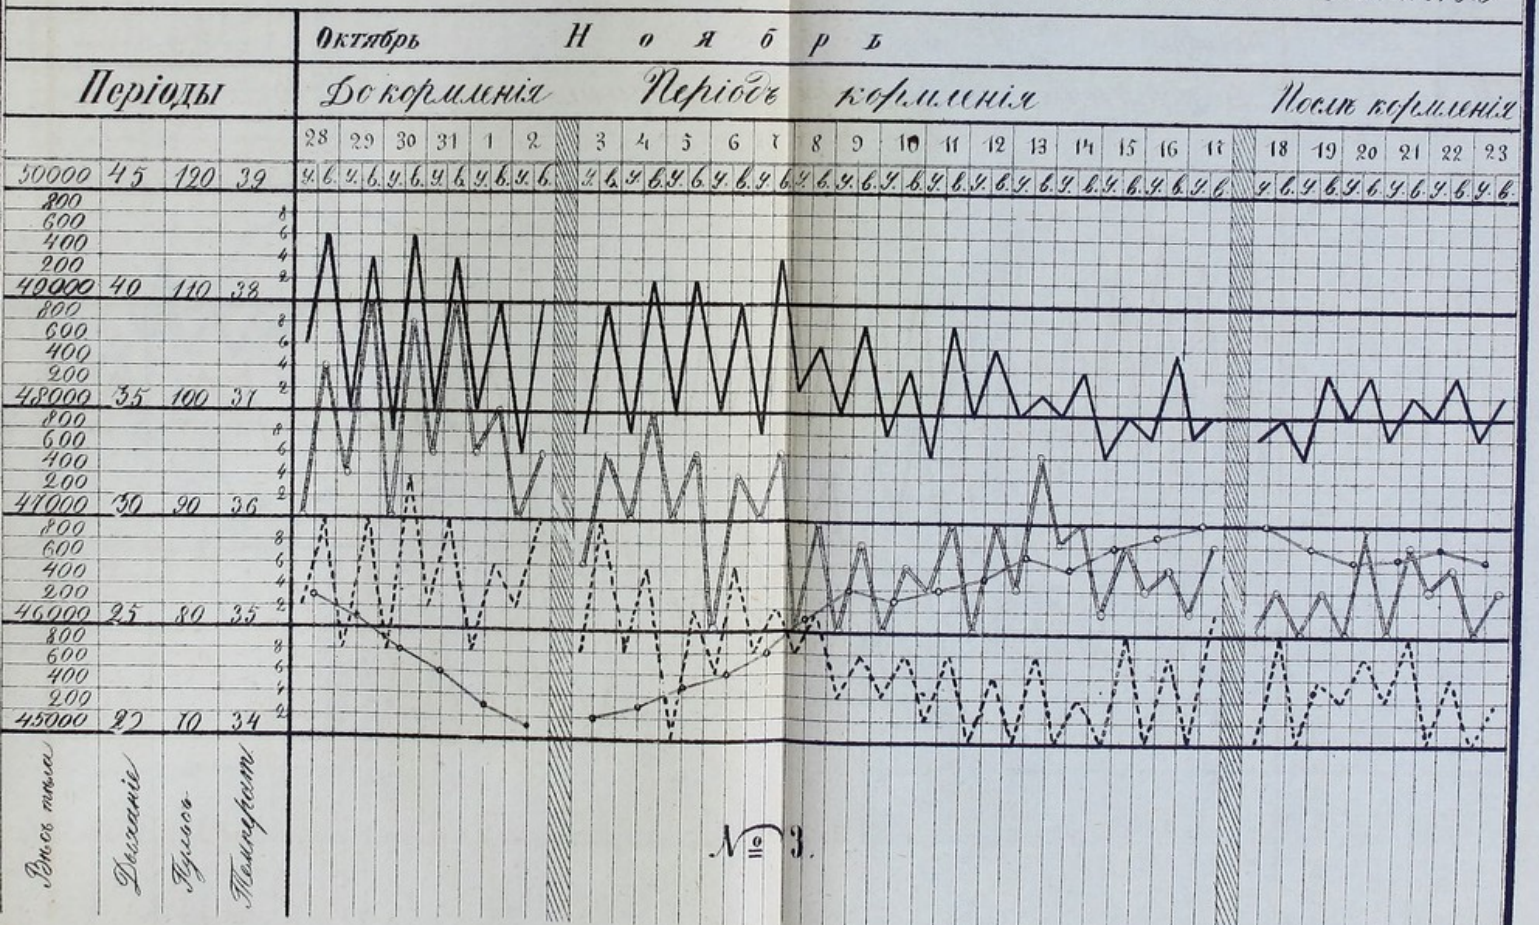 Октябрь Ноябрь
Періоды До кормленія Періодъ кормленія Послѣ кормленія
28 29 30 31 1 2 3 4 5 6 7 8 9 10 11 12 13 14 15 16 17 18 19 20 21 22 23
50000 45 120 39 у. в. у. в. у. в. у. в. у. в. у. в. у. в. у. в. у. в. у. в. у. в. у. в. у. в. у. в. у. в. у. в. у. в. у. в. у. в. у. в. у. в. у. в. у. в. у. в. у. в. у. в. у. в.
800 8
600 6
400 4
200 2
49000 40 110 38
800 8
600 6
400 4
200 2
48000 35 100 37
800 8
600 6
400 4
200 2
47000 30 90 36
800 8
600 6
400 4
200 2
46000 25 80 35
800 8
600 6
400 4
200 2
45000 20 70 34
Вѣсъ тѣла
Дыханіе
Пульсъ
Температ.
№ 3.